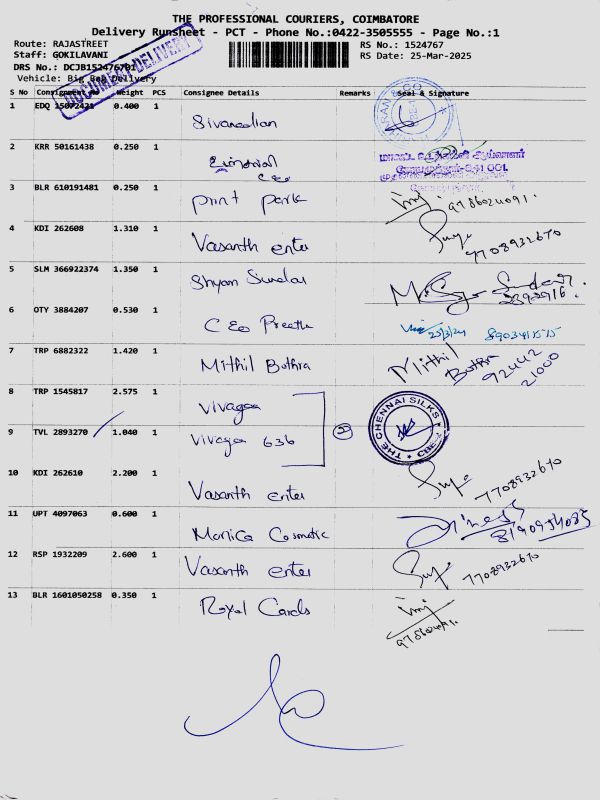 THE PROFESSIONAL COURIERS, COIMBATORE
Delivery Runsheet - PCT - Phone No.:0422-3505555 - Page No.:1
Route: RAJASTREET
RS No.: 1524767
Staff: GOKILAVANI
RS Date: 25-Mar-2025
DRS No.: DCJB152476701
Vehicle: Big Bag Delivery
DOCUMENT DELIVERY
S No Consignment No Weight PCS Consignee Details Remarks Seal & Signature
1 EDQ 15072421 0.400 1
2 KRR 50161438 0.250 1
3 BLR 610191481 0.250 1 Print Park 9786024091.
4 KDI 262608 1.310 1 Vasanth enter 7708932670
5 SLM 366922374 1.350 1 Shyam Sundar
6 OTY 3884207 0.530 1 CEO Preetha 25/3/24
7 TRP 6882322 1.420 1 Mithil Bothra Mithil Bothra 92442 21000
8 TRP 1545817 2.575 1 Vivagaa
9 TVL 2893270 1.040 1 Vivagaa 636 2 THE CHENNAI SILKS CBE
10 KDI 262610 2.200 1 Vasanth enter 7708932670
11 UPT 4097063 0.600 1 Monica Cosmetic 8190934085
12 RSP 1932209 2.600 1 Vasanth enter 7708932670
13 BLR 1601050258 0.350 1 Royal Cards